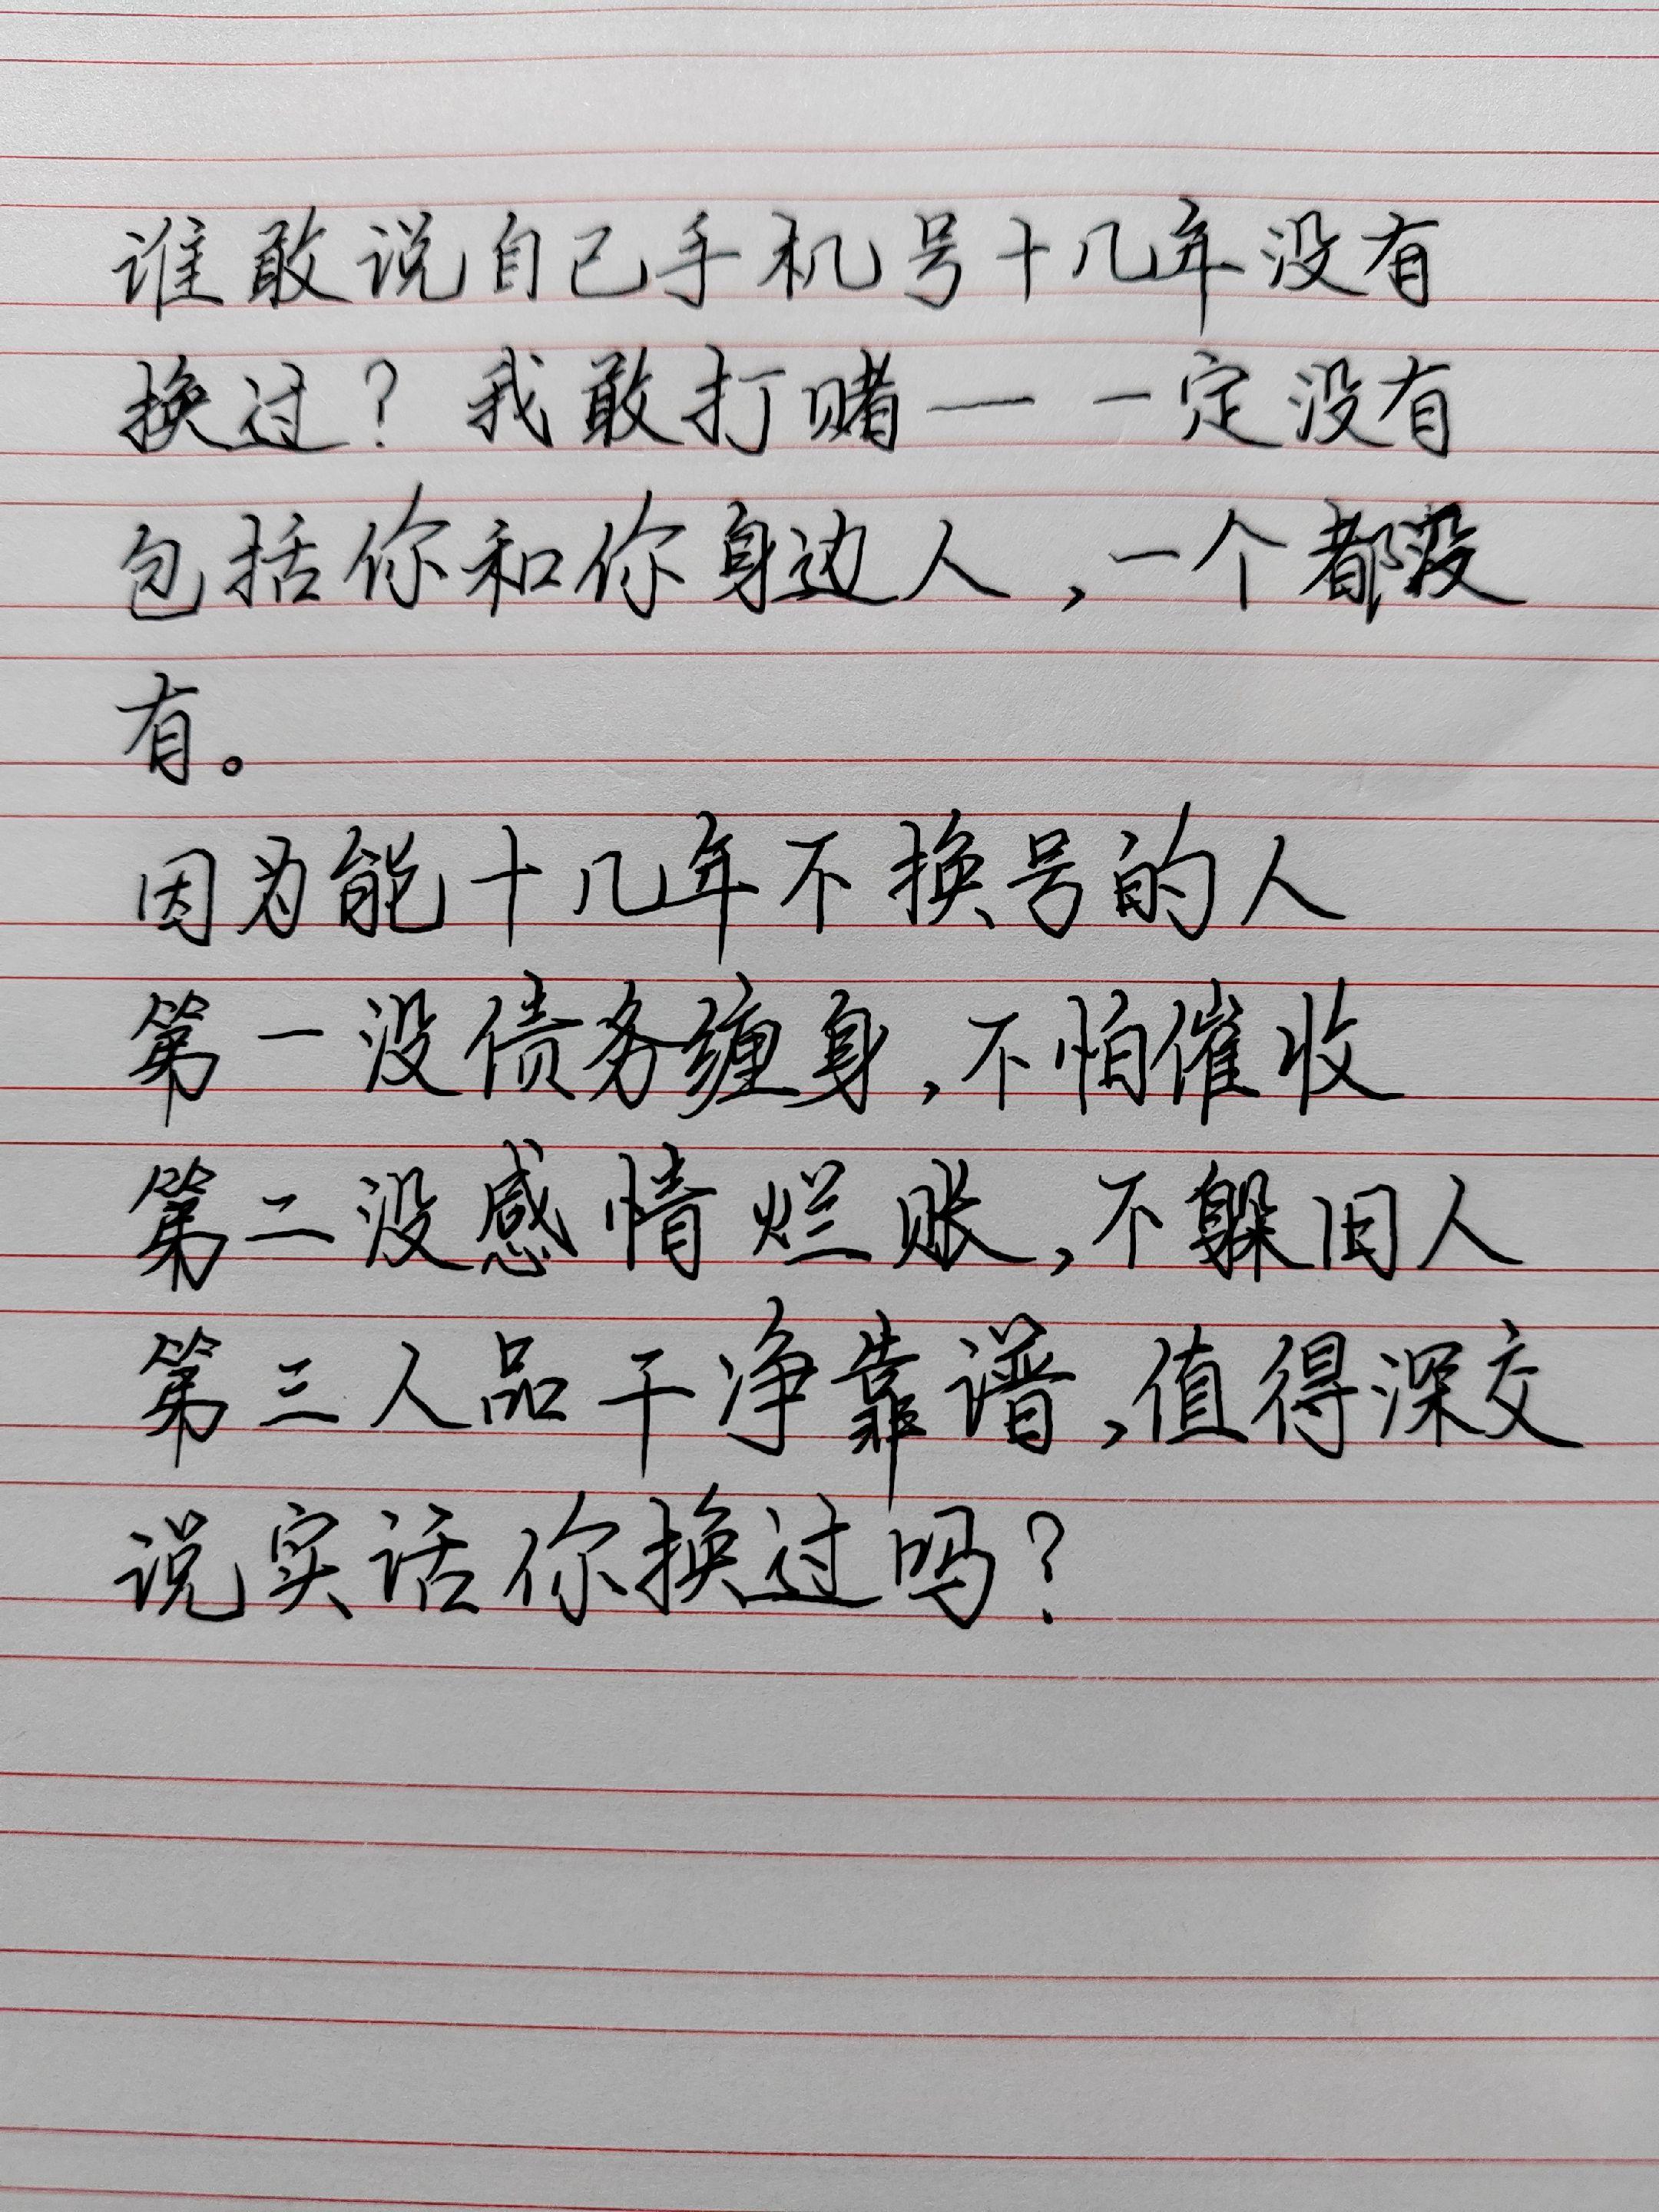 谁敢说自己手机号十几年没有
换过？我敢打赌— 一定没有
包括你和你身边人，一个都没
有。
因为能十几年不换号的人
第一没债务缠身，不怕催收
第二没感情烂账，不躲旧人
第三人品干净靠谱，值得深交
说实话你换过吗？